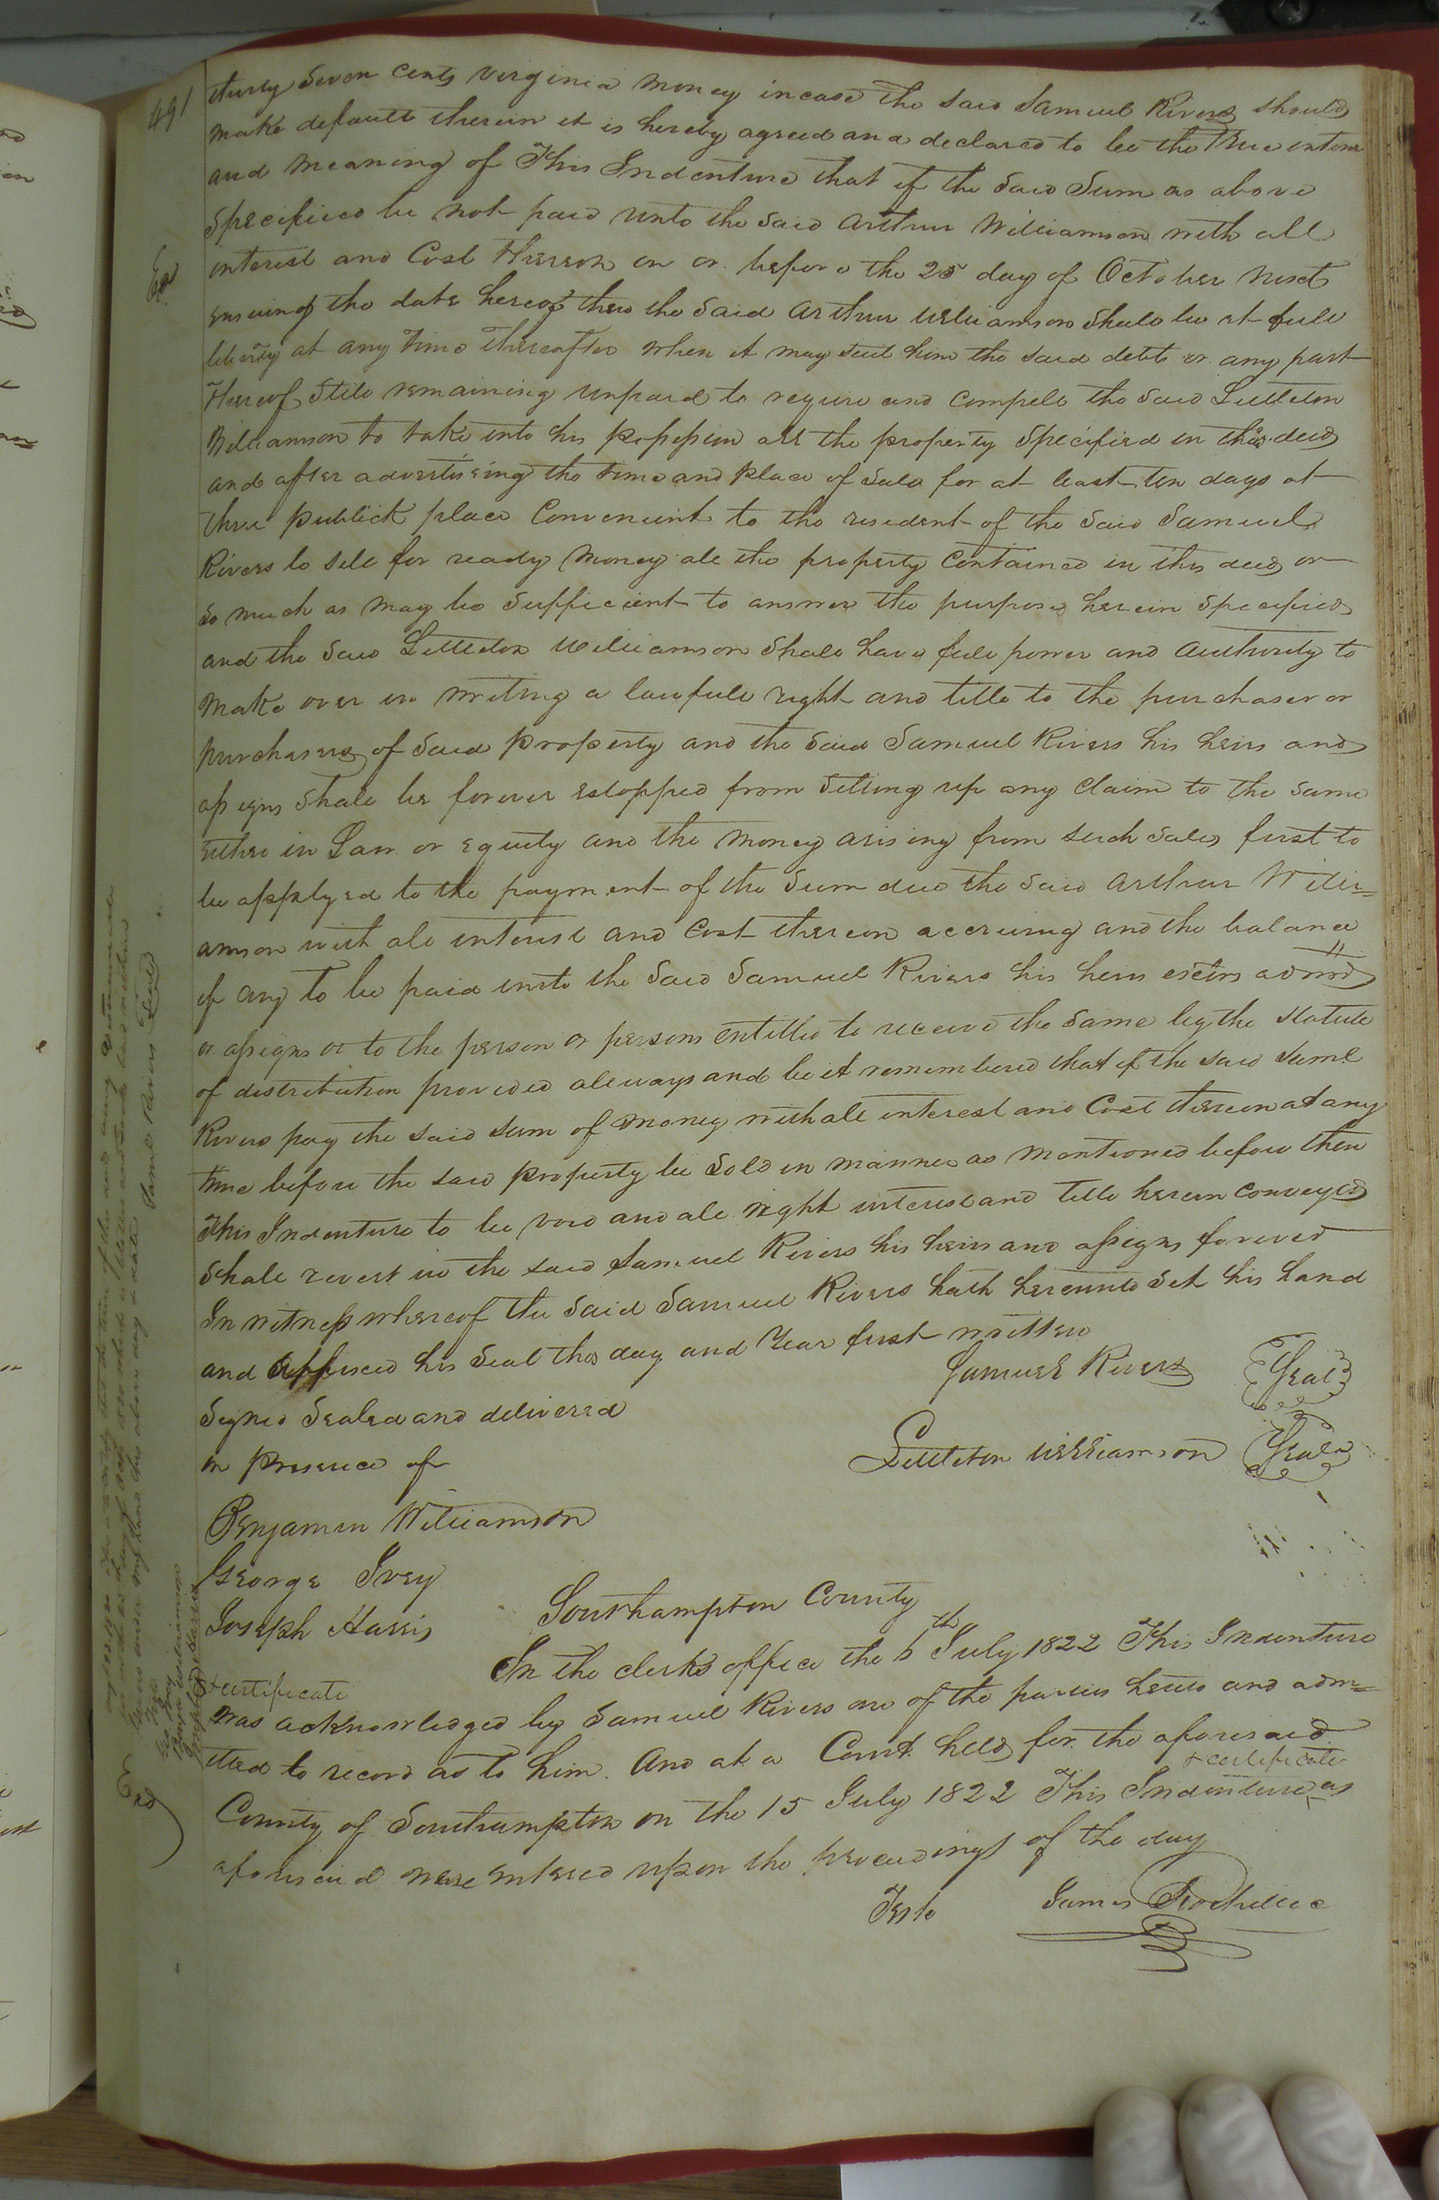 491
thirty Seven Cents Virginia Money incase the said Samuel Rivers should
make default therein it is hereby agreed and declared to be the True intent
and Meaning of This Indenture that if the Said Sum as above
Specified be not paid unto the said Arthur Williamson with all
interest and Cost Thereon on or before the 25 day of October next
ensuing the date hereof then the Said Arthur Williamson Shall be at full
liberty at any Time Thereafter when it may suit him the said debt or any part
Thereof Still remaining unpaid to require and compell the Said Littleton
Williamson to take into his possession all the property Specified in this deed
and after advertising the time and place of Sale for at least ten days at
three publick place Convenient to the resident of the Said Samuel
Rivers to sell for ready Money all the property Contained in this deed or
so much as may be Sufficient to answer the purpose herein Specified
and the Said Littleton Williamson Shall have full power and Authority to
Make over in writing a lawfull right and title to the purchaser or
purchasers of Said property and the Said Samuel Rivers his heirs and
assigns Shall be forever estopped from Setting up any Claim to the Same
Either in Law or equity and the Money arising from such Sales first to
be applyed to the payment of the Sum due the Said Arthur Willi=
amson with all interest and Cost thereon accruing and the balance
if any to be paid unto the Said Samuel Rivers his heirs exõrs admrs
or assigns or to the person or persons entitled to receive the Same by the Statute
of distribution provided allways and be it remembered that if the said Saml
Rivers pay the said Sum of Money with all interest and Cost thereon at any
time before the said property be Sold in manner as Mentioned before then
This Indenture to be void and all right interest and title herein Conveyed
Shall revert in the said Samuel Rivers his heirs and assigns forever
In witness whereof the Said Samuel Rivers hath hereunto Set his hand
and affixed his Seal the day and Year first written
Samuel Rivers {Seal}
Signed Sealed and delivered
in Presence of
Littleton Williamson {Seal}
Benjamin Williamson
George Ivey
Joseph Harris
Southampton County
In the clerks office the 6th July 1822 This Indenture
+ certificate
was acknowledged by Samuel Rivers one of the parties hereto and adm=
itted to record as to him. And at a Court held for the aforesaid
+ certificate
County of Southampton on the 15 July 1822 This Indenture as
aforesaid were entered upon the proceedings of the day
Teste James Rochelle